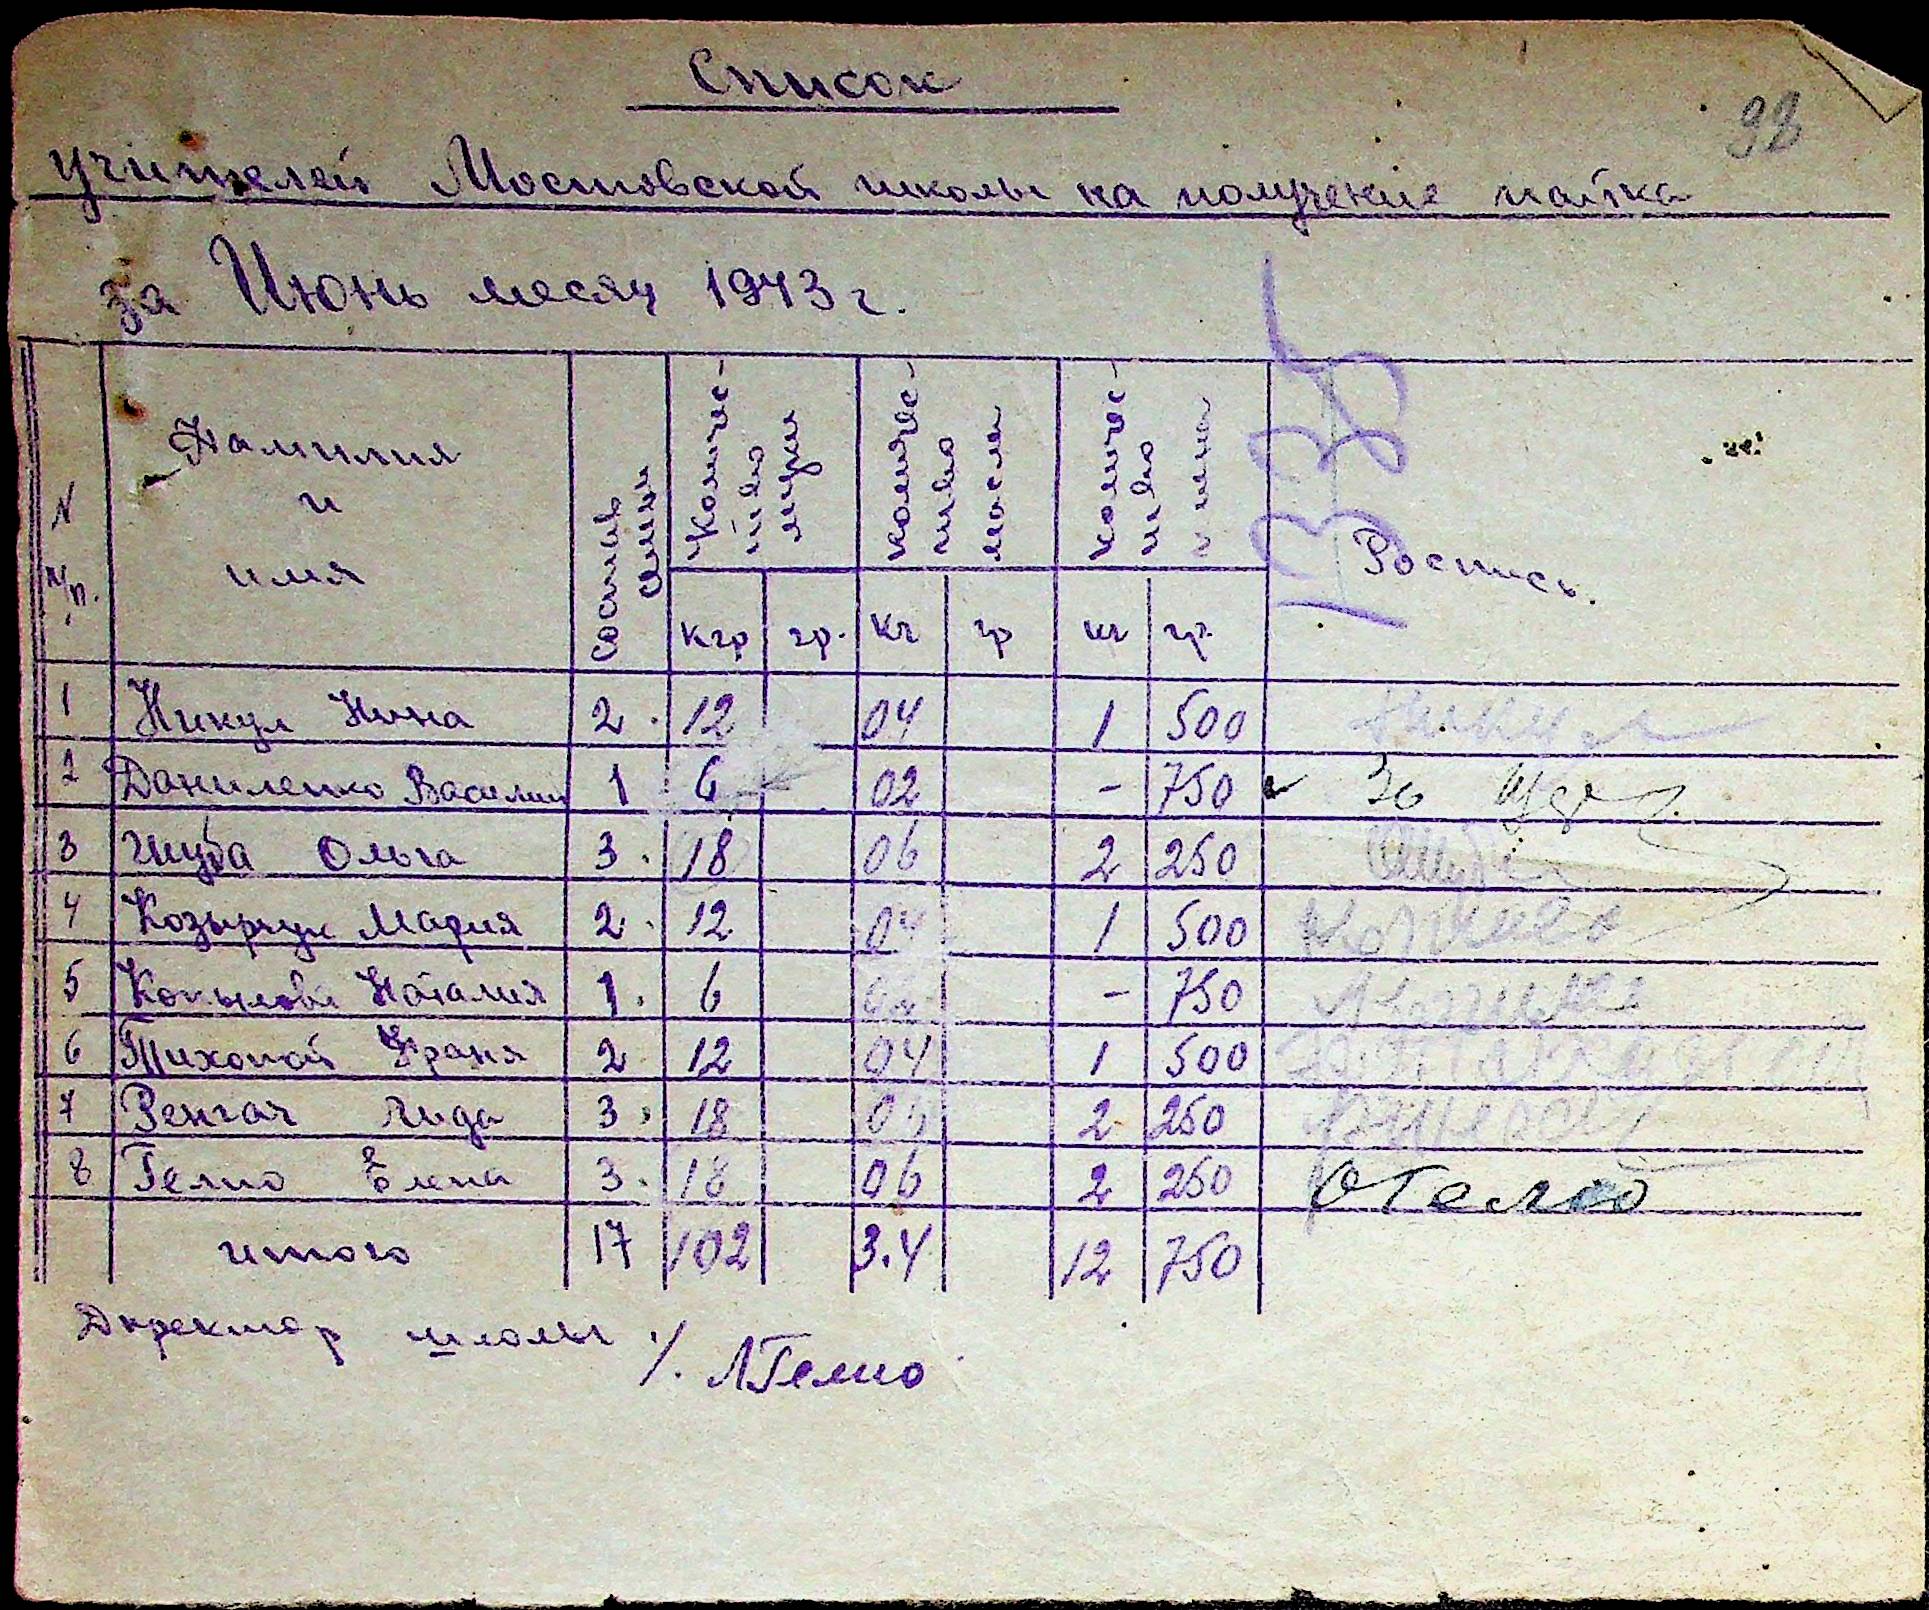 Список
98
учителей Мостовской школы на получение пайка
за Июнь месяц 1943 г.
N п/п. Фамилия и имя Состав семьи Количес-тво муки количес-тво масла количес-тво Роспись.
кгр гр. кг гр кг гр.
1 Никул Нина 2. 12 04 1 500 Никул
2 Даниленко Василий 1 6 02 - 750 За
3 Шуба Ольга 3. 18 06 2 250 Шуба
4 Козырчук Мария 2. 12 04 1 500
5 Копылова Наталия 1. 6 - 750
6 Тихопой Франя 2 12 04 1 500
7 Ренгач Лида 3. 18 2 250
8 Гелио Елена 3. 18 06 2 250 Гелио
итого 17 102 3.4 12 750
Директор школы /. Гелио